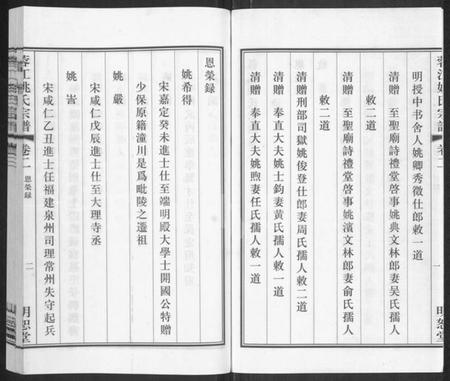 蓉江姚氏宗譜
卷二
一
明恕堂
明授中書舍人姚卿秀徵仕郎敕一道
清贈 至聖廟詩禮堂啓事姚典文林郎妻吳氏孺人
敕二道
清贈 至聖廟詩禮堂啓事姚濱文林郎妻俞氏孺人
敕二道
清贈刑部司獄姚俊登仕郎妻周氏孺人敕二道
清贈 奉直大夫姚士鈞妻黃氏孺人敕一道
清贈 奉直大夫姚煦妻任氏孺人敕一道
恩榮錄
姚希得
宋嘉定癸未進士仕至端明殿大學士開國公特贈
少保原籍潼川是爲毗陵之遷祖
姚嚴
宋咸仁戊辰進士仕至大理寺丞
姚訔
宋咸仁乙丑進士任福建泉州司理常州失守起兵
蓉江姚氏宗譜
卷二
恩榮錄
二
明恕堂